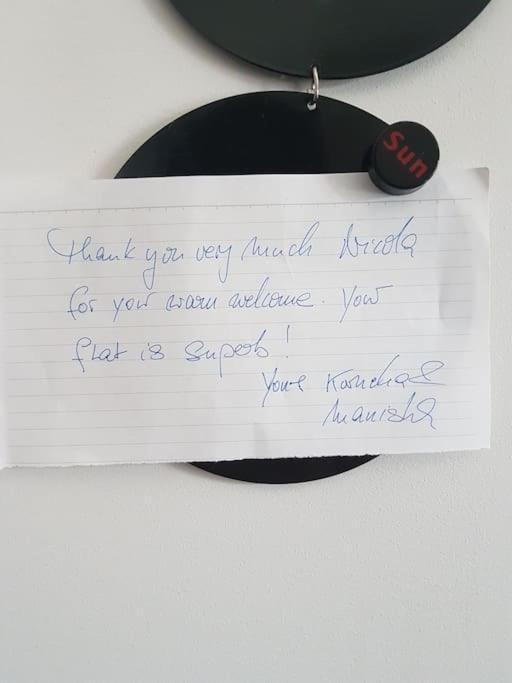 Sun
Thank you very much Nicola
for your warm welcome. Your
flat is superb!
Yours